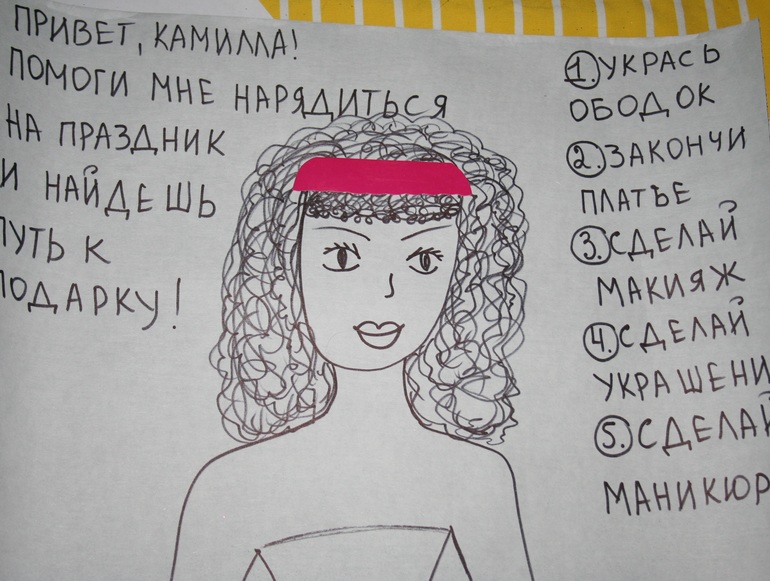 ПРИВЕТ, КАМИЛЛА!
ПОМОГИ МНЕ НАРЯДИТЬСЯ
НА ПРАЗДНИК
И НАЙДЕШЬ
ПУТЬ К
ПОДАРКУ!
1. УКРАСЬ
ОБОДОК
2. ЗАКОНЧИ
ПЛАТЬЕ
3. СДЕЛАЙ
МАКИЯЖ
4. СДЕЛАЙ
УКРАШЕНИ
5. СДЕЛАЙ
МАНИКЮР